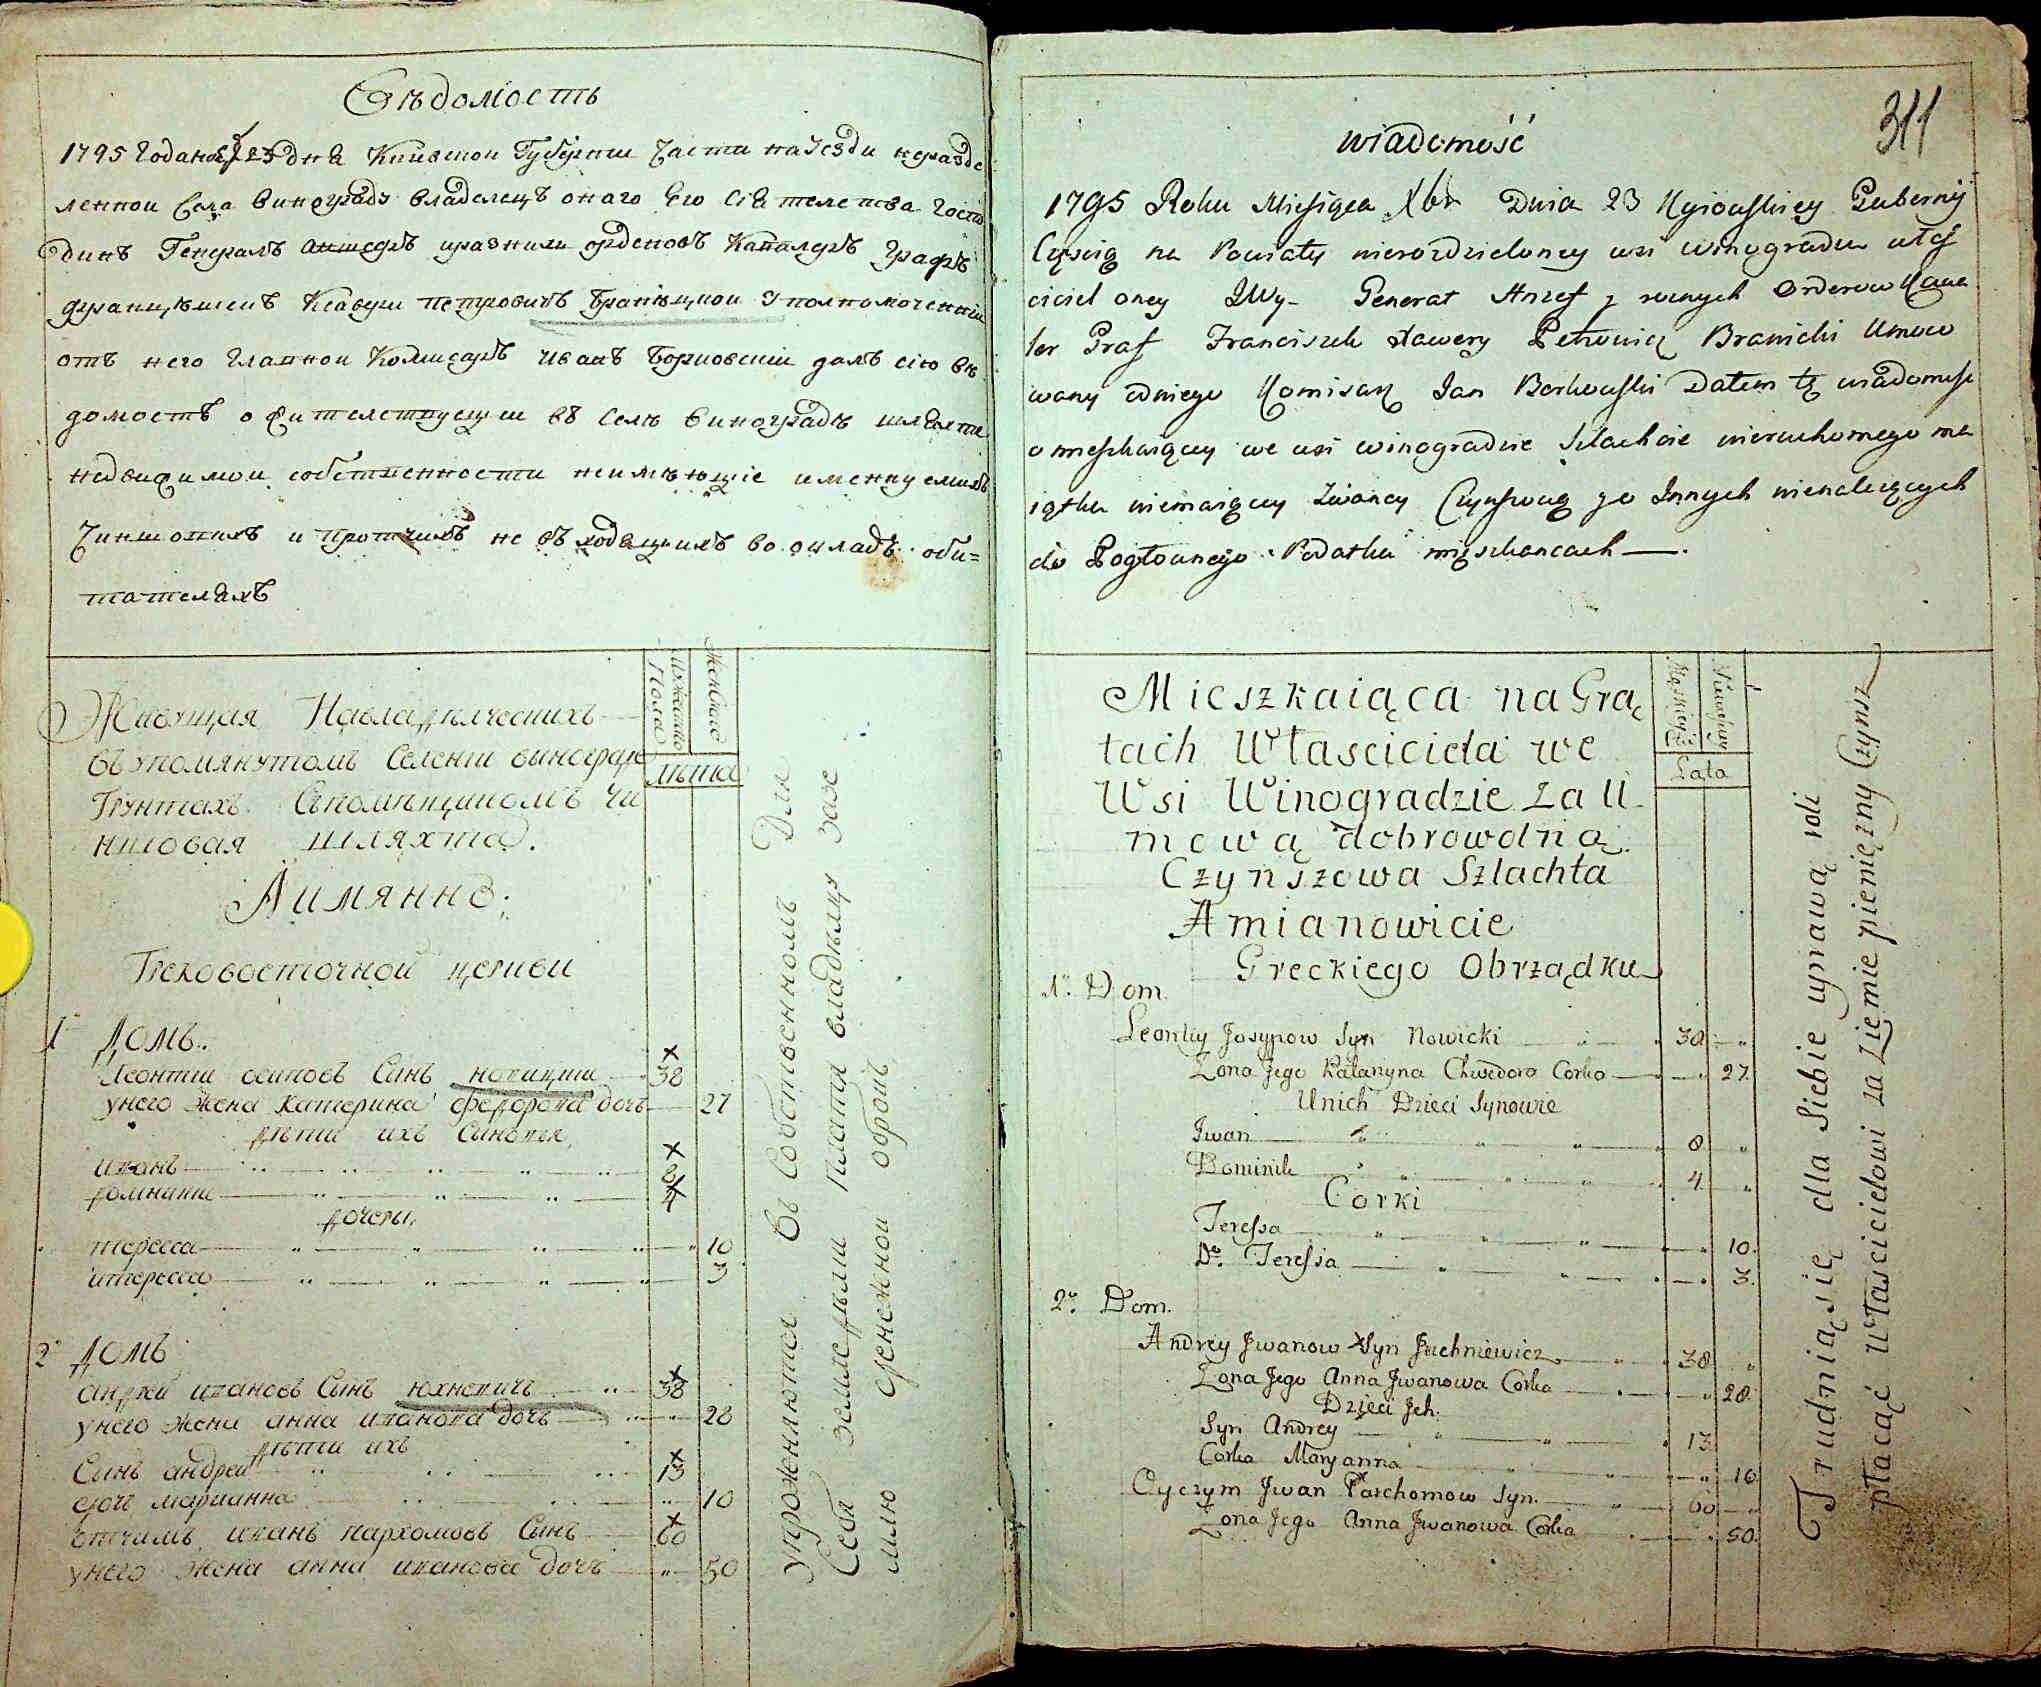 Вѣдомость
1795 Года 23 дня Киевской Губерніи Части на Уезди неразде
ленной Села Винограду владелецъ онаго Его Сіятелства Госпо
динъ Генералъ аншефъ иразнихъ орденовъ Кавалеръ Графъ
Ксавери Петровичъ Браницкой Уполномоченній
отъ него Главной Комисаръ Иванъ Борковскій далъ сію вѣ
домость о жителствующи въ Селѣ Виноградѣ шляхте
недвижимой собственности неимѣющіе именуемихъ
Чиншовихъ и Протчихъ не въходящихъ во окладъ оби=
тателяхъ
Мужеска Пола
Женскаго
лѣта
Живущая На владѣлческихъ
въ упомянутомъ Селеніи виноград
Грунтахъ Спомѣщикомъ чи
ншовая шляхта.
Аимянно:
Грековосточной церкви
1 домъ.
Леонтіи осиповъ Сынъ новицки 38
унего жена катерина федорова дочь 27
дѣти ихъ Синовя
иванъ 8
доминик 4
дочеры
тереса 10
итереса 3
2 домъ
андрей ивановъ Сынъ юхневичъ 38
унего жена анна иванова дочь 28
дѣти ихъ
Сынъ андрей 13
дочь марианна 10
отчимъ иванъ пархомовъ Сынъ 60
унего жена анна иванова дочъ 50
упражняются въ Собственномъ Для
Себя земледѣлы платя владѣлцу зазе
млю денежной оброкъ
311
wiadomość
1795 Roku Miesiąca Xbr Dnia 23 Kyiowskiey Guberny
Częscią na Powiaty nierozdzieloney wsi winogradu właś
ciciel oney JWy- Generał Anzef z roznych Orderow Kawa
ler Graf Franciszek Xawery Petrowicz Branicki Umoco
wany odniego Komisarz Jan Borkowski Dałem tę wiadomość
o mieszkaiącey we wsi winogradzie Szlachcie nieruchomego ma
iątku niemaiącey zwaney Czynszową y o Innych nienależących
do Pogłownego Podatku mięszkancach
Męskiey
Niewiesciey
Lata
Mieszkaiąca na Grą
tach Własciciela we
Wsi Winogradzie za U
mową dobrowolną
Czynszowa Szlachta
Amianowicie
Greckiego Obrządku
1º. Dom.
Leontiy Josypow Syn Nowicki 38
Zona Jego Katarzyna Chwedora Corka 27
Unich Dzieci Synowie
Jwan 8
Dominik 4
Corki
Teressa 10.
Dº. Teressa 3.
2º. Dom.
Andrey Jwanow Syn Juchniewicz 38
Zona Jego Anna Jwanowa Corka 28
Dzieci Jch.
Syn Andrey 13
Corka Maryanna 10
Oyczym Jwan Parchomow Syn. 60
Zona Jego Anna Jwanowa Corka 50.
Trudnią się dla Siebie uprawą roli
płacąć Włascicielowi za Ziemie pieniężny Czynsz